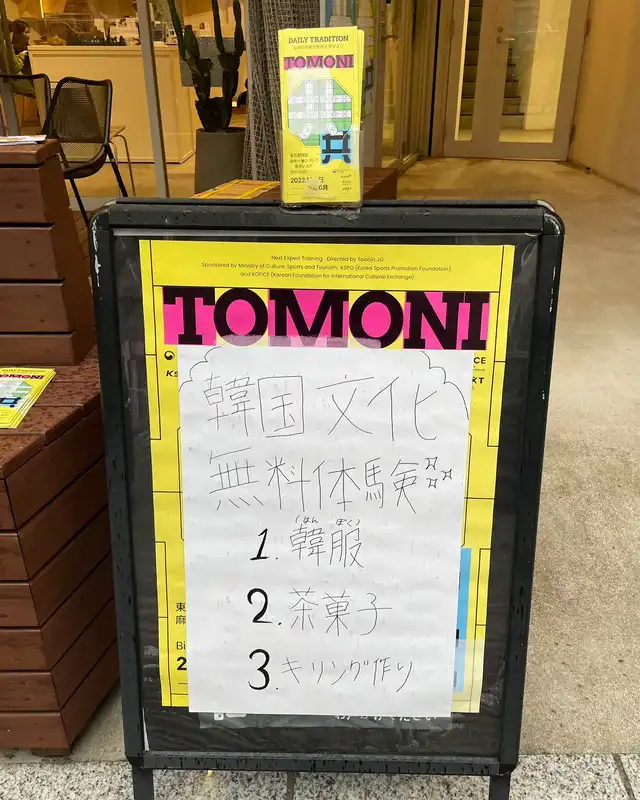 DAILY TRADITION
TOMONI
Next Expert Training · Directed by Soobin JO
Sponsored by Ministry of Culture, Sports and Tourism, KSPO (Korea Sports Promotion Foundation),
and KOFICE (Korean Foundation for International Cultural Exchange)
TOMONI
韓国文化
無料体験
(はん ぼく)
1. 韓服
2. 茶菓子
3. キリング作り
東
麻
Bi
2